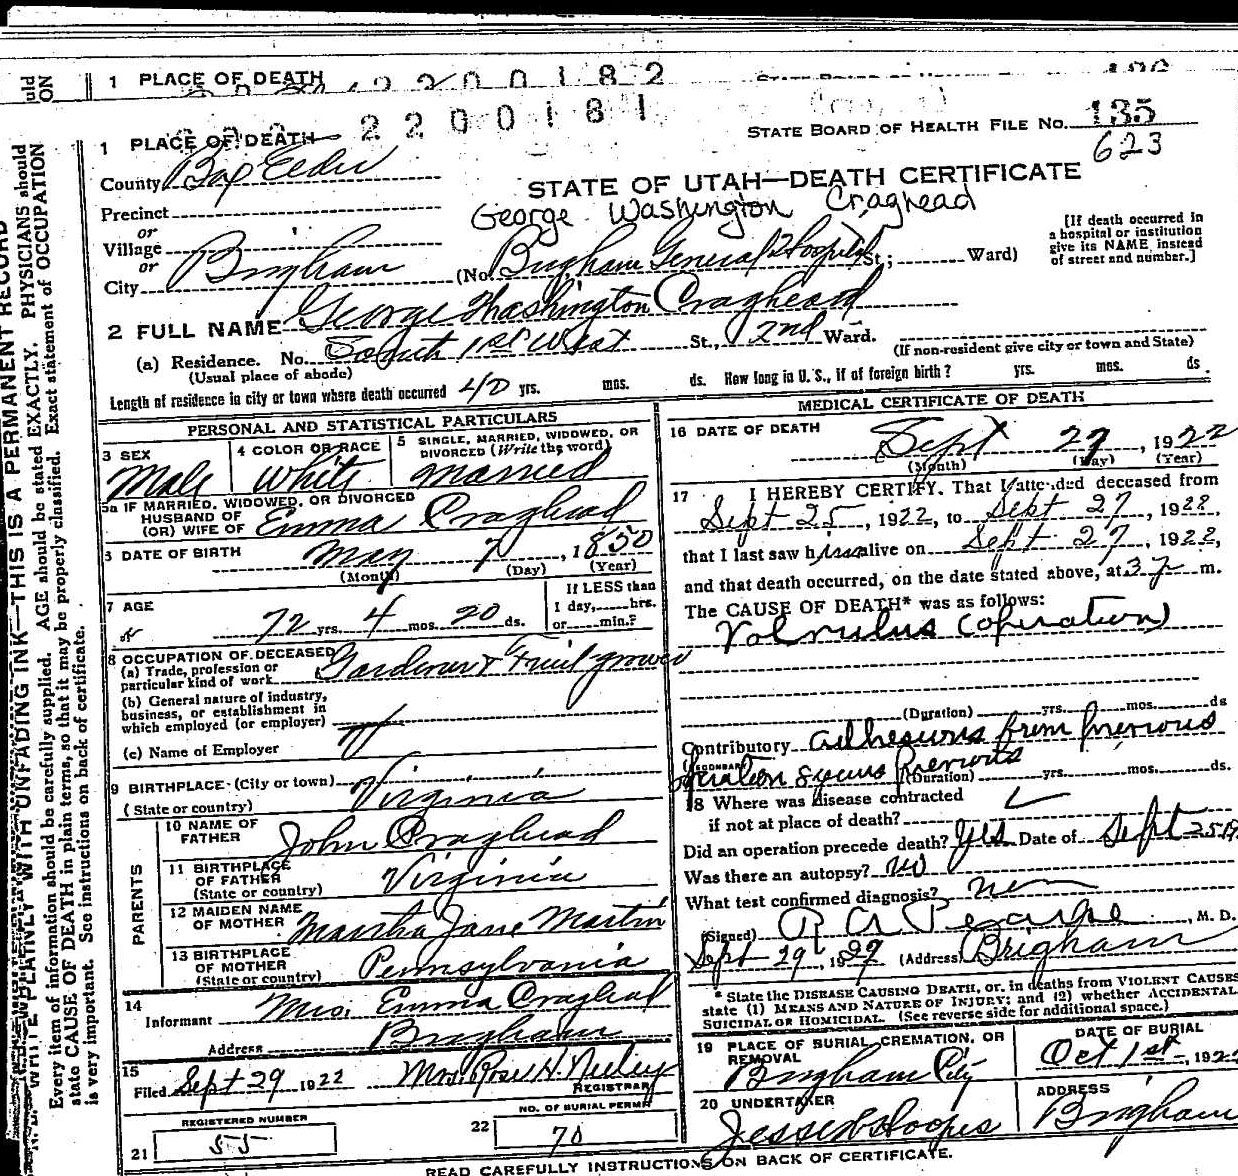 1 PLACE OF DEATH 2200182
STATE BOARD OF HEALTH
2200181
1 PLACE OF DEATH
STATE BOARD OF HEALTH FILE No. 135
623
County Box Elder
STATE OF UTAH—DEATH CERTIFICATE
Precinct
George Washington Craghead
or
Village
or
City Brigham (No. Brigham General Hospital St.; Ward)
[If death occurred in
a hospital or institution
give its NAME instead
of street and number.]
2 FULL NAME George Washington Craghead
(a) Residence. No. South 1st West St., 2nd Ward.
(Usual place of abode)
(If non-resident give city or town and State)
Length of residence in city or town where death occurred 40 yrs. mos. ds. How long in U. S., if of foreign birth? yrs. mos. ds.
PERSONAL AND STATISTICAL PARTICULARS
3 SEX
Male
4 COLOR OR RACE
White
5 SINGLE, MARRIED, WIDOWED, OR
DIVORCED (Write the word)
Married
5a IF MARRIED, WIDOWED, OR DIVORCED
HUSBAND OF
(OR) WIFE OF Emma Craghead
DATE OF BIRTH
May 7, 1850
(Month) (Day) (Year)
7 AGE
72 yrs. 4 mos. 20 ds.
If LESS than
1 day, hrs.
or min.?
8 OCCUPATION OF DECEASED
(a) Trade, profession or
particular kind of work Gardener & Fruit grower
(b) General nature of industry,
business, or establishment in
which employed (or employer)
(c) Name of Employer
9 BIRTHPLACE (City or town)
(State or country) Virginia
PARENTS
10 NAME OF
FATHER John Craghead
11 BIRTHPLACE
OF FATHER
(State or country) Virginia
12 MAIDEN NAME
OF MOTHER Martha Jane Martin
13 BIRTHPLACE
OF MOTHER
(State or country) Pennsylvania
14
Informant Mrs. Emma Craghead
Address Brigham
15
Filed Sept 29 1922 Mrs Rose H. Neeley
REGISTRAR
REGISTERED NUMBER
21 55
NO. OF BURIAL PERMIT
22 70
MEDICAL CERTIFICATE OF DEATH
16 DATE OF DEATH
Sept 27, 1922
(Month) (Day) (Year)
17 I HEREBY CERTIFY. That I attended deceased from
Sept 25, 1922, to Sept 27, 1922,
that I last saw him alive on Sept 27, 1922,
and that death occurred, on the date stated above, at 3 m.
The CAUSE OF DEATH* was as follows:
Volvulus (operation)
(Duration) yrs. mos. ds
Contributory adhesions from previous
(SECONDARY)
operation years previous (Duration) yrs. mos. ds.
18 Where was disease contracted
if not at place of death?
Did an operation precede death? Yes Date of Sept 25
Was there an autopsy? no
What test confirmed diagnosis?
(Signed) R A Pearse, M. D.
Sept 29, 1922 (Address) Brigham
* State the DISEASE CAUSING DEATH, or, in deaths from VIOLENT CAUSES
state (1) MEANS AND NATURE OF INJURY; and (2) whether ACCIDENTAL
SUICIDAL OR HOMICIDAL. (See reverse side for additional space.)
19 PLACE OF BURIAL, CREMATION, OR
REMOVAL
Brigham City
DATE OF BURIAL
Oct 1st, 1922
20 UNDERTAKER
Jesse W Hoopes
ADDRESS
Brigham
READ CAREFULLY INSTRUCTIONS ON BACK OF CERTIFICATE.
WRITE PLAINLY WITH UNFADING INK—THIS IS A PERMANENT RECORD
Every item of information should be carefully supplied. AGE should be stated EXACTLY. PHYSICIANS should
state CAUSE OF DEATH in plain terms, so that it may be properly classified. Exact statement of OCCUPATION
is very important. See instructions on back of certificate.